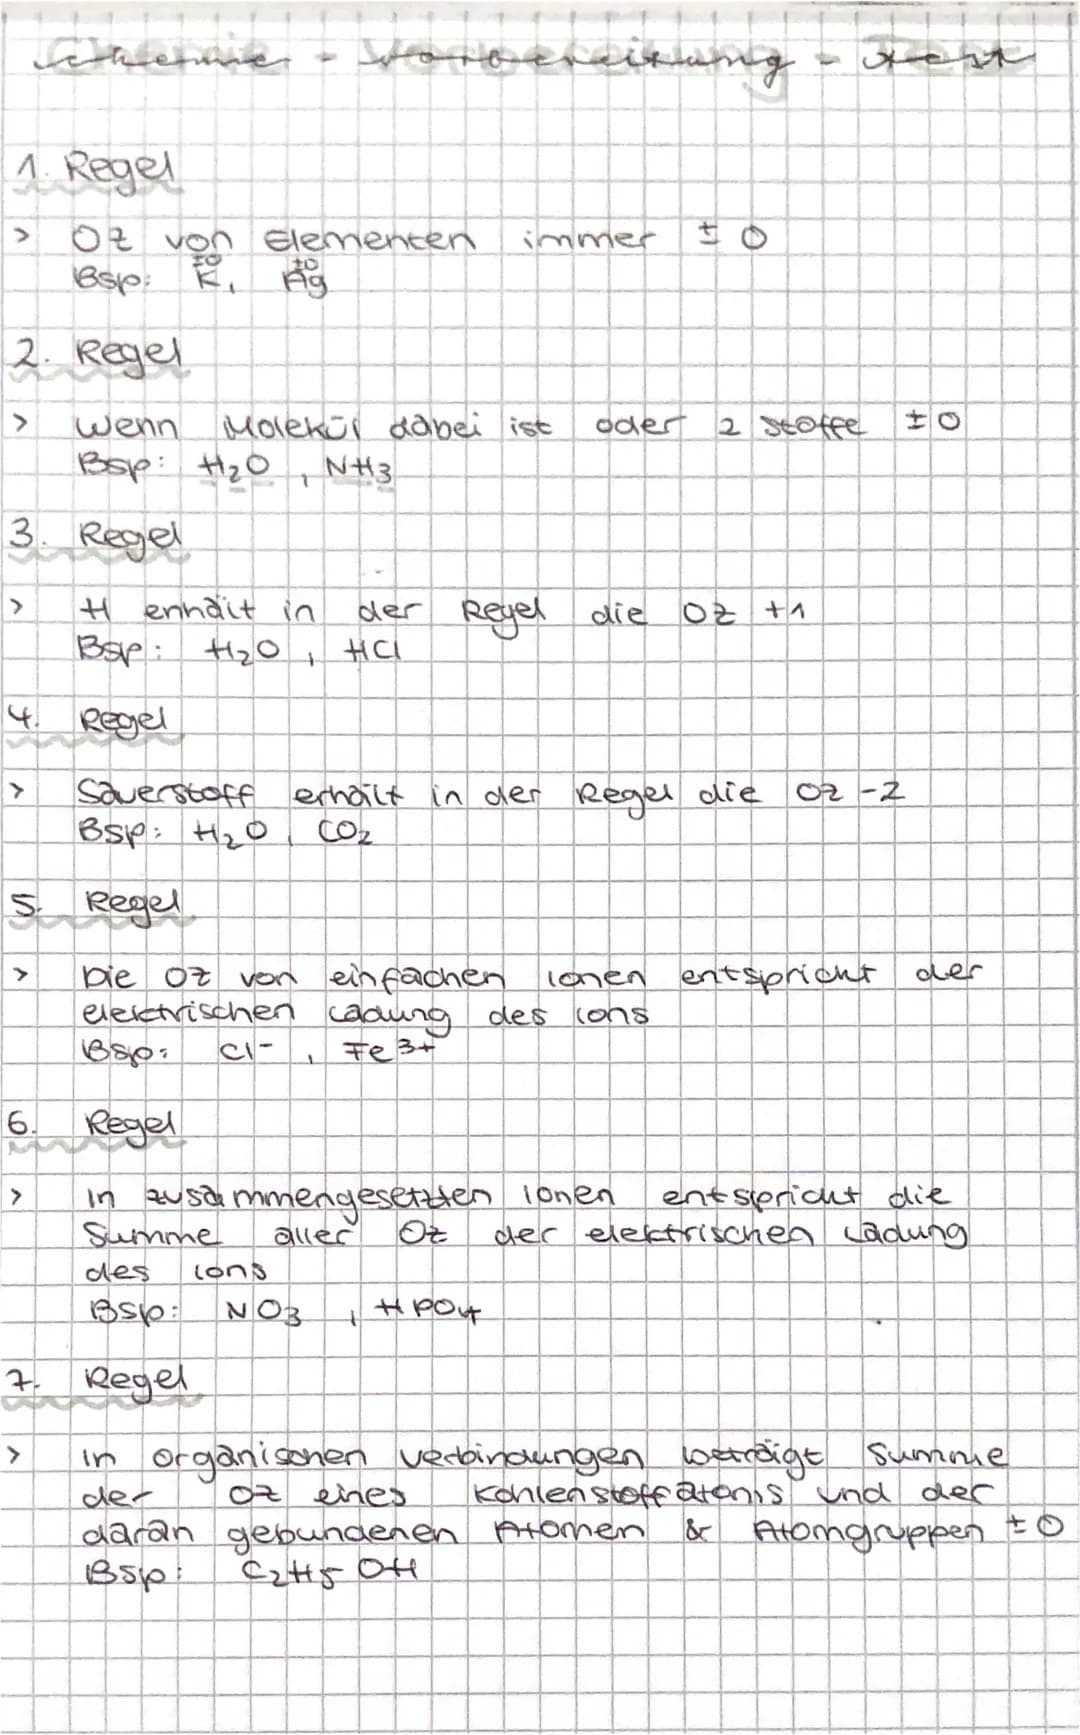 Chemie - Vorbereitung - Test
1. Regel
> OZ von Elementen immer ±0
±0 ±0
Bsp: K, Ag
2. Regel
> Wenn Molekül dabei ist oder 2 Stoffe ±0
Bsp: H₂O, NH3
3. Regel
> H enhält in der Regel die OZ +1
Bsp: H₂O, HCl
4. Regel
> Sauerstoff erhält in der Regel die OZ -2
Bsp: H₂O, CO₂
5. Regel
> Die OZ von einfachen Ionen entspricht der
elektrischen Ladung des Ions
Bsp: Cl-, Fe3+
6. Regel
> In zusammengesetzten Ionen entspricht die
Summe aller OZ der elektrischen Ladung
des Ions
Bsp: NO3, HPO4
7. Regel
> In organischen Verbindungen beträgt Summe
der OZ eines Kohlenstoffatoms und der
daran gebundenen Atomen & Atomgruppen ±0
Bsp: C2H5OH